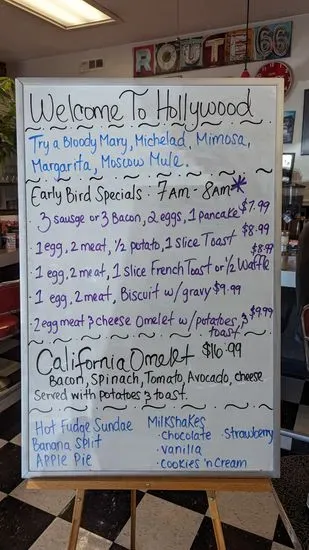 ROUTE 66
Welcome To Hollywood
Try a Bloody Mary, Michelad, Mimosa,
Margarita, Moscow Mule.
Early Bird Specials: 7AM - 8AM*
3 sausge or 3 Bacon, 2 eggs, 1 pancake $7.99
1 egg, 2 meat, 1/2 potato, 1 slice Toast $8.99
1 egg, 2 meat, 1 slice French Toast or 1/2 Waffle $8.99
1 egg, 2 meat, Biscuit w/ gravy $9.99
2 egg meat & cheese Omelet w/potatoes & toast $9.99
California Omelet $16.99
Bacon, Spinach, Tomato, Avocado, cheese
Served with potatoes & toast.
Hot Fudge Sundae
Banana Split
Apple Pie
Milkshakes
·chocolate ·Strawberry
·vanilla
·cookies 'n Cream